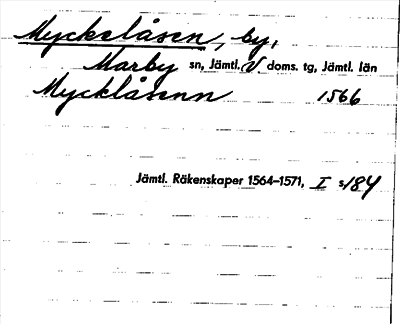 Myckelåsen, by,
Marby sn, Jämtl. V doms. tg, Jämtl. län
Mycklåsenn 1566
Jämtl. Räkenskaper 1564–1571, I s 184